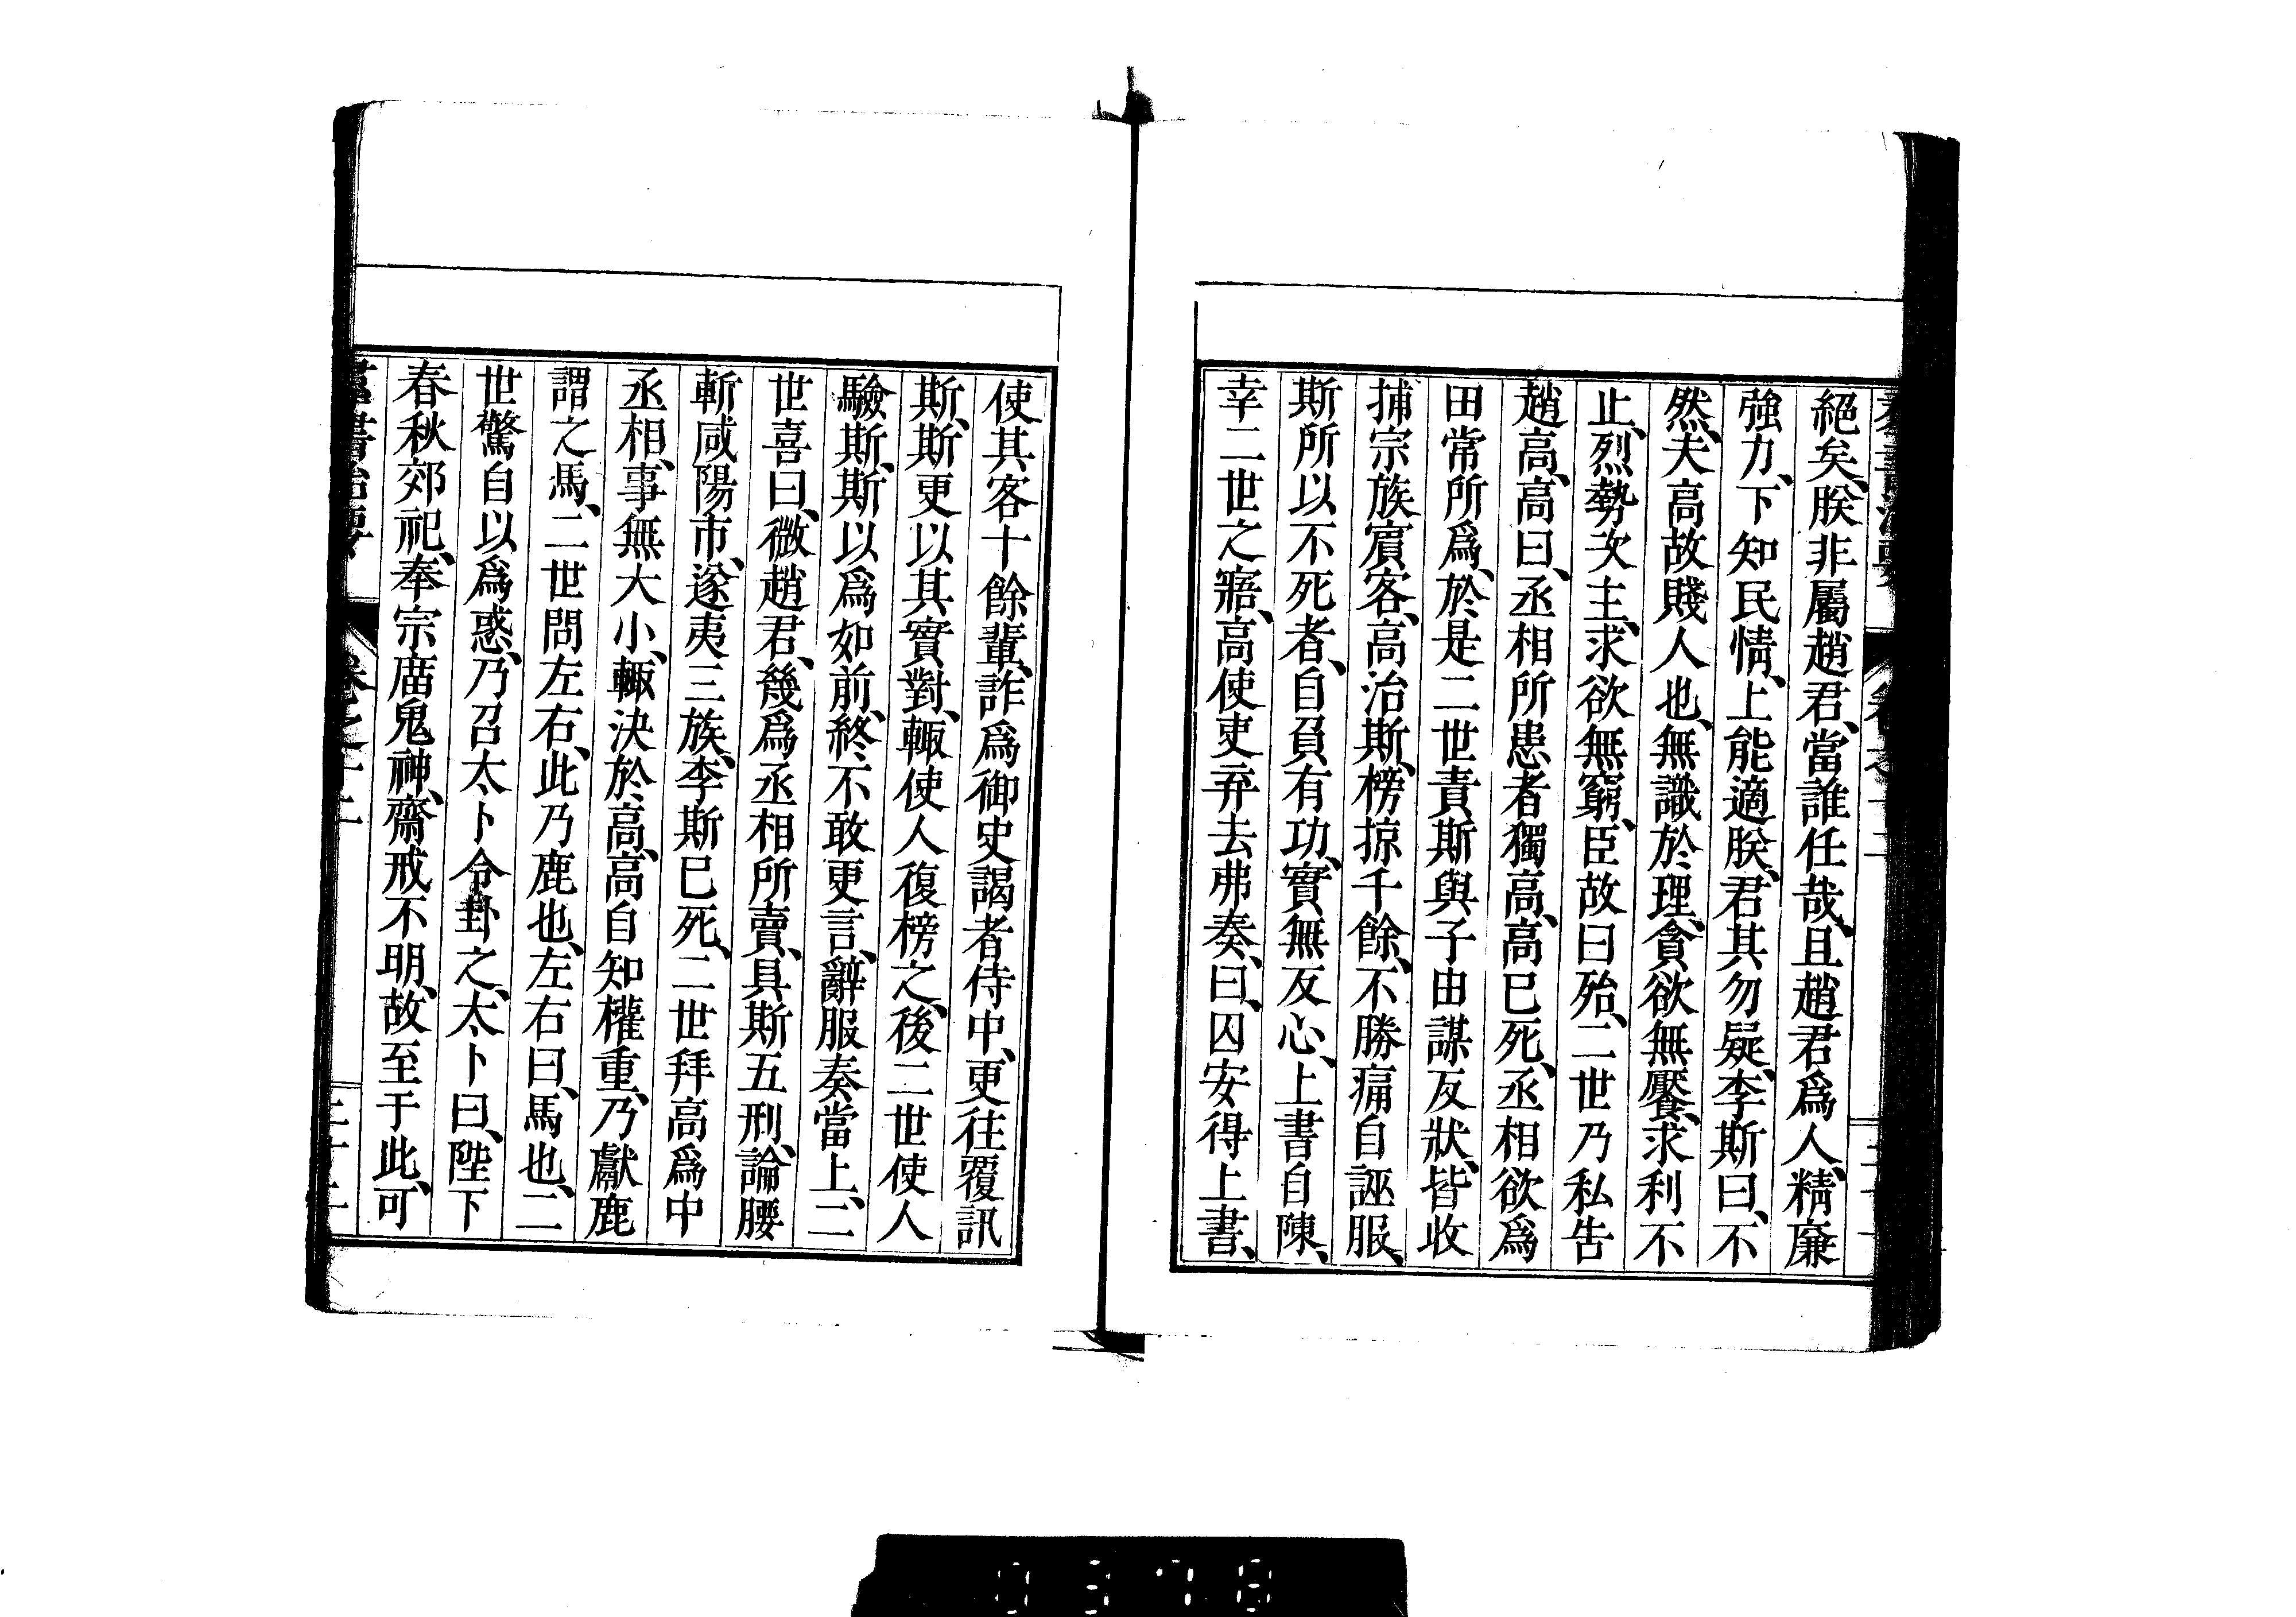 絕矣、朕非屬趙君、當誰任哉、且趙君爲人、精廉
強力、下知民情、上能適朕、君其勿疑、李斯曰、不
然、夫高故賤人也、無識於理、貪欲無饜、求利不
止、烈勢次主、求欲無窮、臣故曰殆、二世乃私告
趙高、高曰、丞相所患者獨高、高已死、丞相欲爲
田常所爲、於是二世責斯與子由謀反狀、皆收
捕宗族賓客、高治斯、榜掠千餘、不勝痛自誣服、
斯所以不死者、自負有功、實無反心、上書自陳、
幸二世之寤、高使吏弃去弗奏、曰、囚安得上書、
使其客十餘輩、詐爲御史謁者侍中、更往覆訊
斯、斯更以其實對、輙使人復榜之、後二世使人
驗斯、斯以爲如前、終不敢更言、辭服奏當上、二
世喜曰、微趙君、幾爲丞相所賣、具斯五刑、論腰
斬咸陽市、遂夷三族、李斯已死、二世拜高爲中
丞相、事無大小、輙決於高、高自知權重、乃獻鹿
謂之馬、二世問左右、此乃鹿也、左右曰、馬也、二
世驚自以爲惑、乃召太卜令卦之、太卜曰、陛下
春秋郊祀、奉宗廟鬼神、齋戒不明、故至于此、可
羣書治要 卷之十二
0378